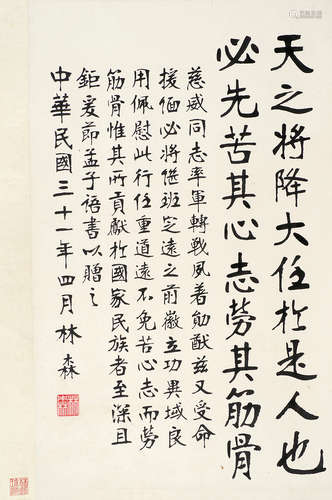 天之將降大任扵是人也
必先苦其心志勞其筋骨
慈威同志率軍轉戰風著勛猷茲又受命
援緬必將繼班定遠之前徽立功異域良
用佩慰此行任重道遠不免苦心志而勞
筋骨惟其所貢獻扵國家民族者至深且
鉅爰節孟子語書以贈之
中華民國三十一年四月林森